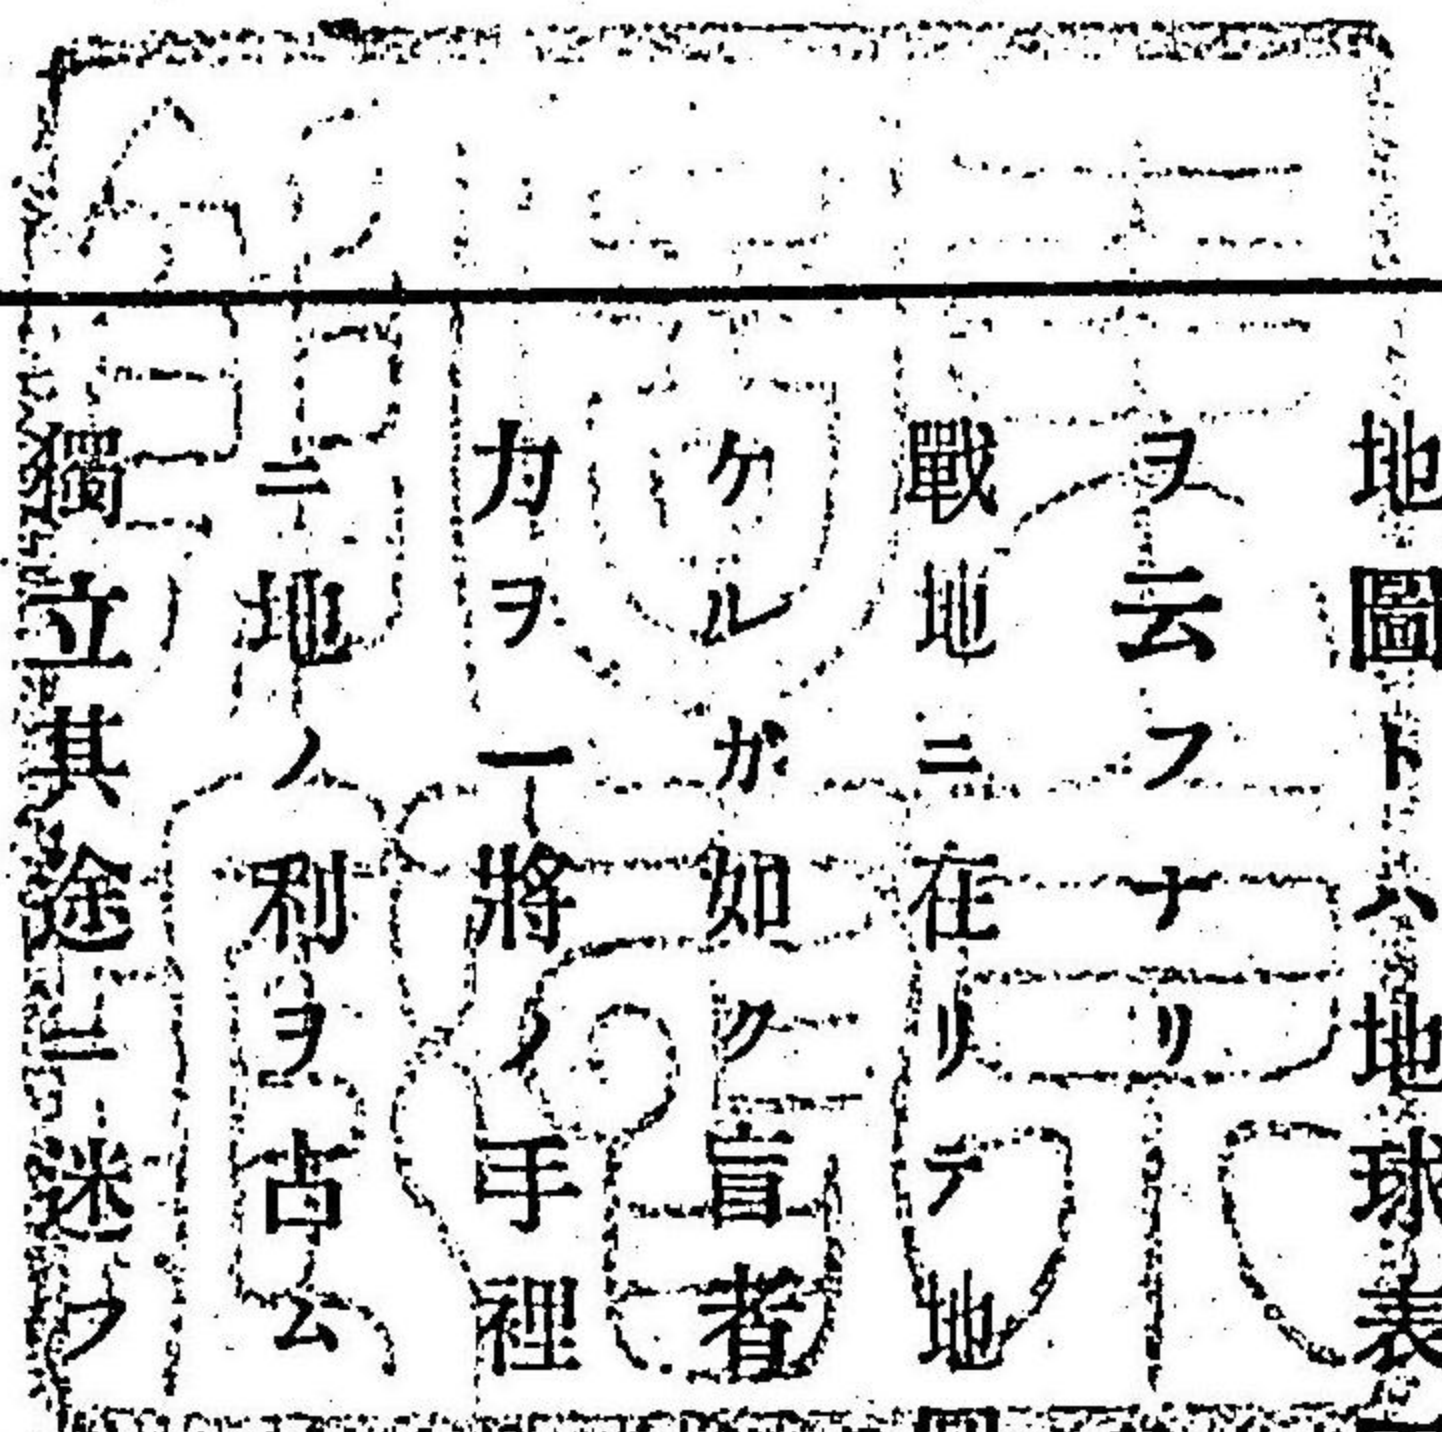 地圖トハ地球表
ヲ云フナリ
戰地ニ在リテ地
ケルガ如ク盲者
力ヲ一將ノ手裡
ニ地ノ利ヲ占ム
獨立其途ニ迷フ